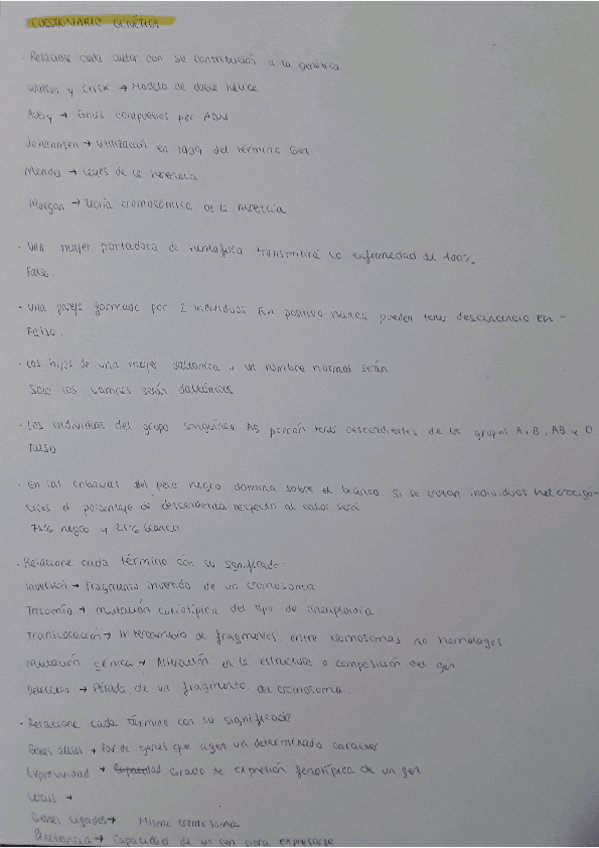 CUESTIONARIO GENÉTICA
· Relacione cada autor con su contribución a la genética.
Watson y Crick → Modelo de doble hélice
Avery → Genes compuestos por ADN
Johannsen → Utilización en 1909 del término Gen
Mendel → Leyes de la herencia
Morgan → Teoría cromosómica de la herencia
· Una mujer portadora de hemofilia transmitirá la enfermedad al 100%.
Falso.
· Una pareja formada por 2 individuos Rh positivo nunca pueden tener descendencia Rh -.
Falso.
· Los hijos de una mujer daltónica y un hombre normal serán
Solo los varones serán daltónicos
· Los individuos del grupo sanguíneo AB podrán tener descendientes de los grupos A, B, AB y O
Falso
· En las cobayas del pelo negro domina sobre el blanco. Si se cruzan individuos heterocigó-
ticos el porcentaje de descendencia respecto al color será
75% negro y 25% blanco
· Relacione cada término con su significado:
Inversión → Fragmento invertido de un cromosoma
Trisomía → mutación cariotípica del tipo de aneuploidía
Translocación → Intercambio de fragmentos entre cromosomas no homólogos
Mutación génica → Alteración en la estructura o composición del gen
Deleción → Pérdida de un fragmento del cromosoma.
· Relacione cada término con su significado
Genes alelos → Par de genes que rigen un determinado carácter
Expresividad → Grado de expresión fenotípica de un gen
Locus →
Genes ligados → Mismo cromosoma
Penetrancia → Capacidad de un gen para expresarse